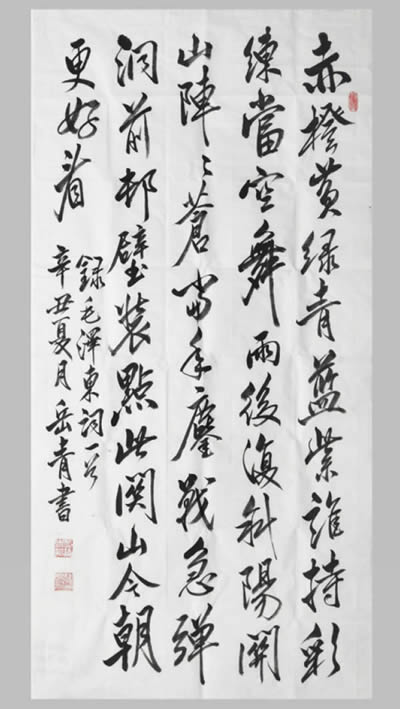 赤橙黄绿青藍紫誰持彩
練當空舞雨後復斜陽関
山陣〻蒼當年鏖戰急弹
洞前邨壁裝點此関山今朝
更好看
錄毛澤東詞一首
辛丑夏月岳青書